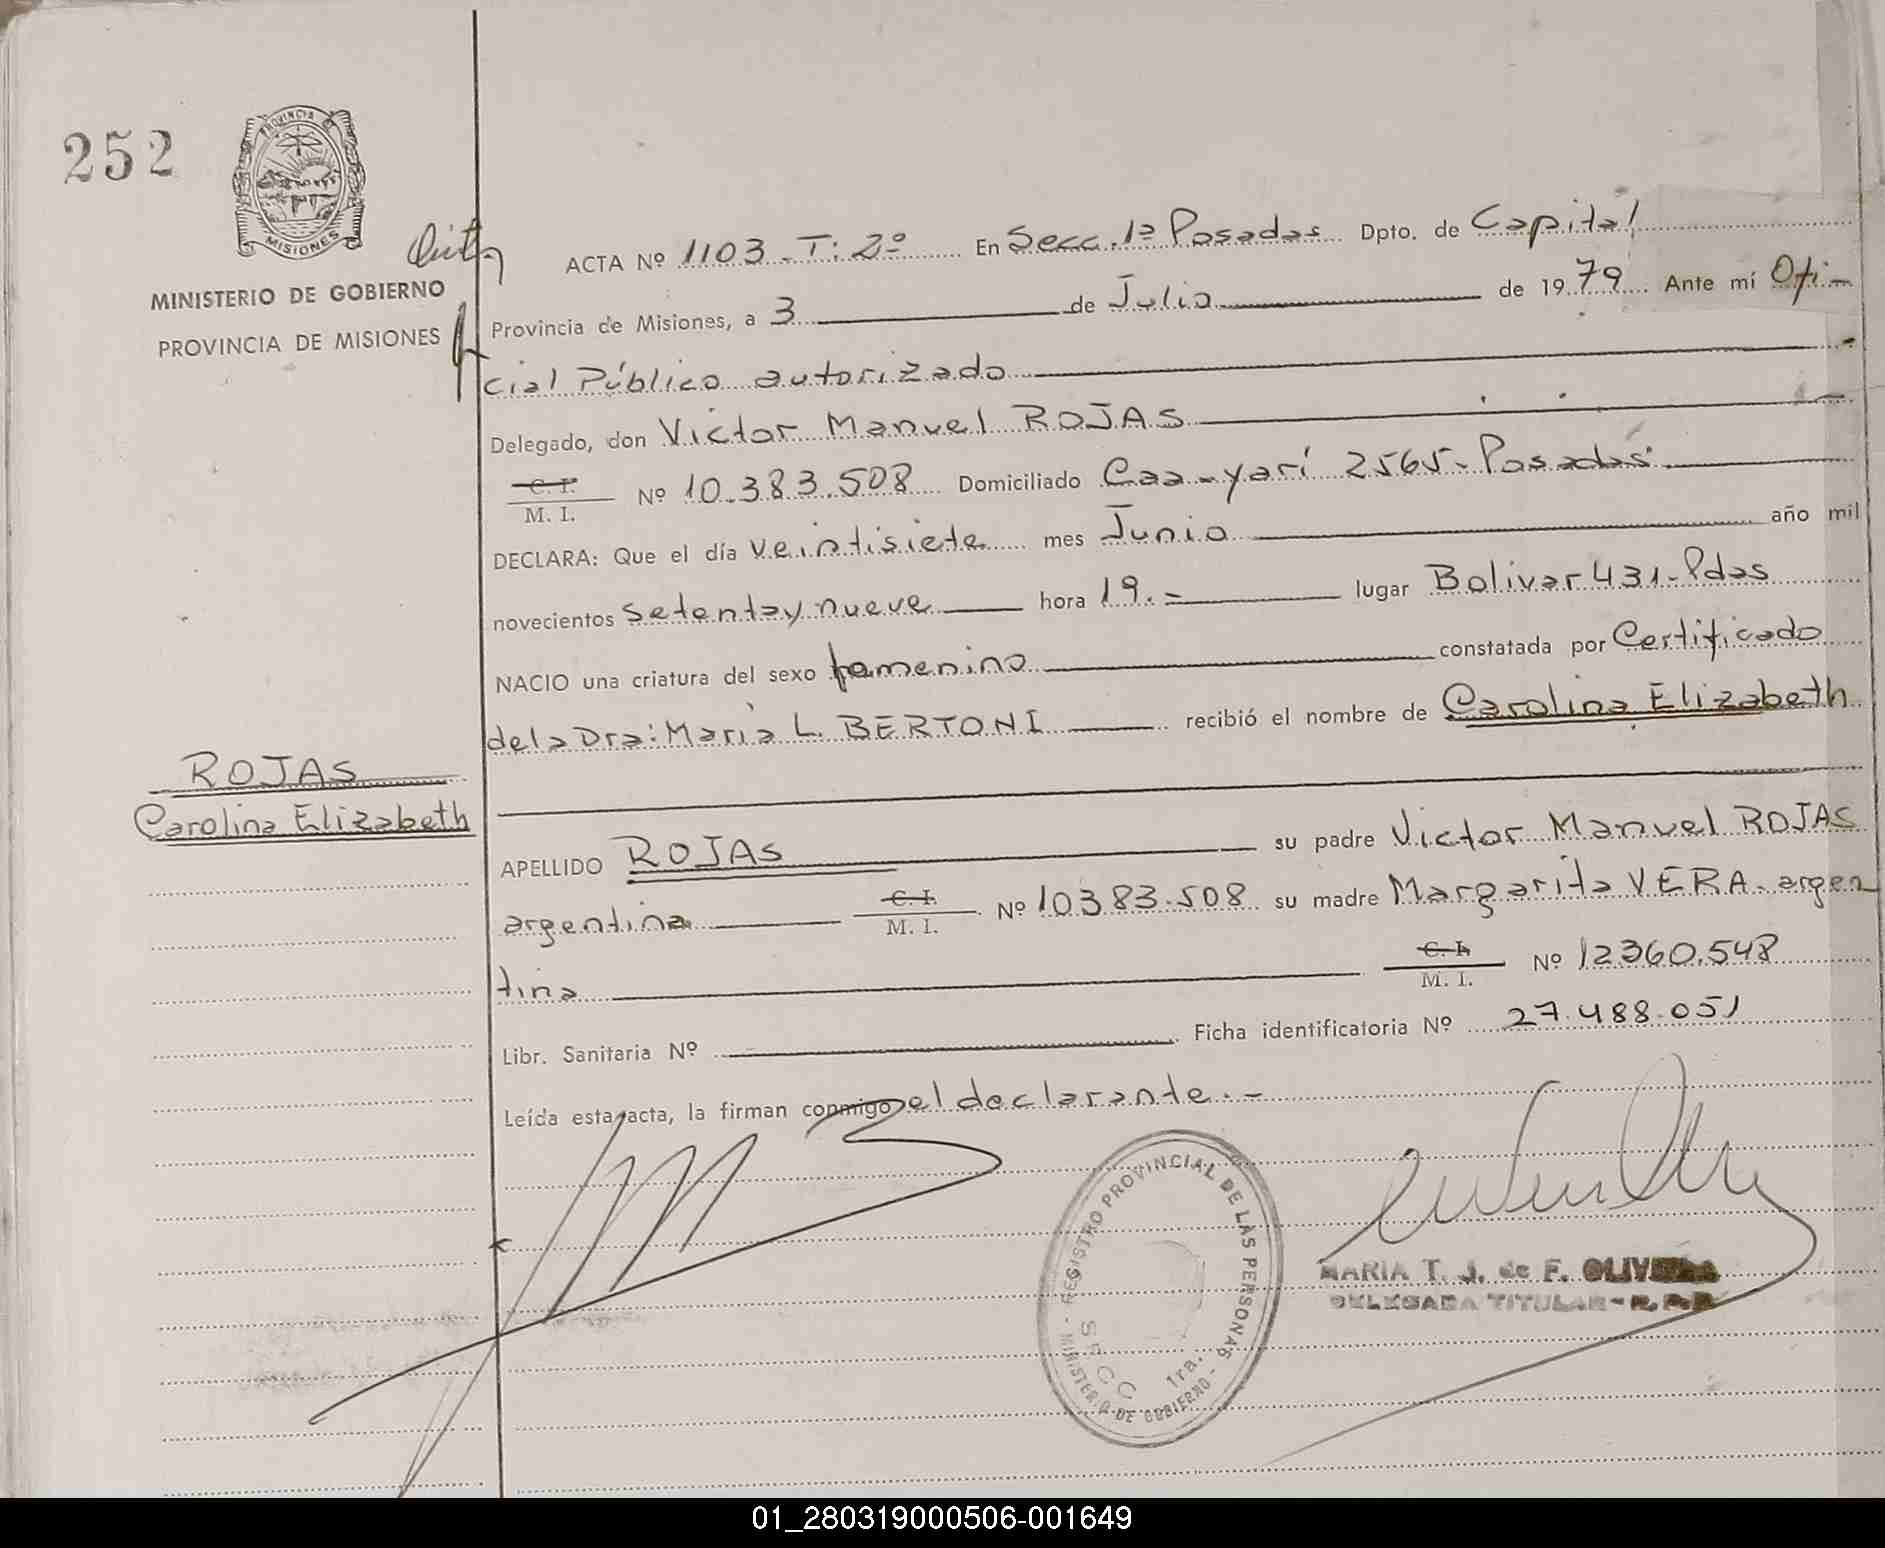 252
PROVINCIA DE
MISIONES
MINISTERIO DE GOBIERNO
PROVINCIA DE MISIONES
ACTA Nº 1103 - T: 2º En Secc. 1ª Posadas Dpto. de Capital
Provincia de Misiones, a 3 de Julio de 1979 Ante mí Ofi-
cial Público autorizado
Delegado, don Victor Manuel ROJAS
C. I.
M. I. Nº 10.383.508 Domiciliado Caa-yarí 2565- Posadas
DECLARA: Que el día veintisiete mes Junio año mil
novecientos setentay nueve hora 19.= lugar Bolivar 431-Pdas
NACIO una criatura del sexo femenino constatada por Certificado
dela Dra: Maria L. BERTONI recibió el nombre de Carolina Elizabeth
ROJAS
Carolina Elizabeth
APELLIDO ROJAS su padre Victor Manuel ROJAS
argentina C. I. M. I. Nº 10383.508 su madre Margarita VERA- argen
tina C. I. M. I. Nº 12360.548
Libr. Sanitaria Nº Ficha identificatoria Nº 27.488.051
Leída esta acta, la firman conmigo el declarante.-
REGISTRO PROVINCIAL DE LAS PERSONAS
- MINISTERIO DE GOBIERNO -
SECC 1ra.
MARIA T. J. de F. OLIVERA
DELEGADA TITULAR - R. P. P.
01_280319000506-001649